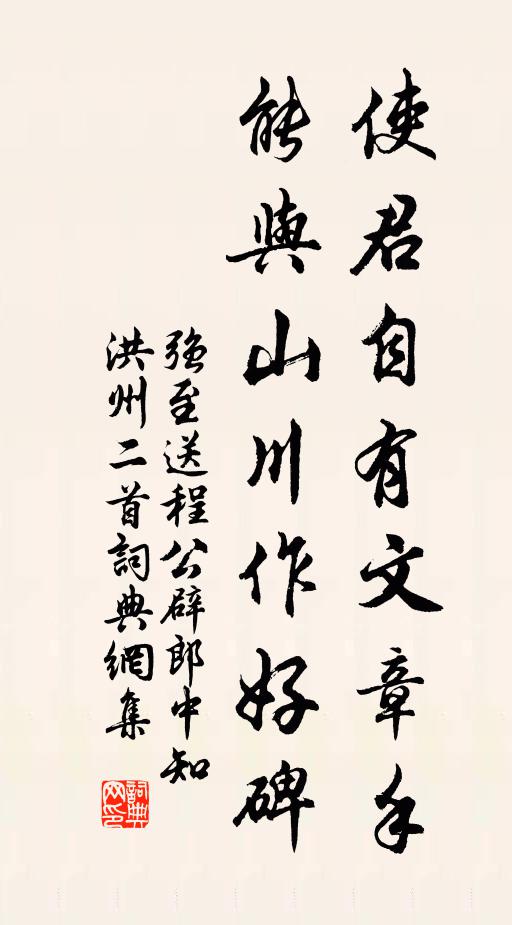 使君自有文章手
能與山川作好碑
強至送程公辟郎中知
洪州二首詞典網集
詞典
网印